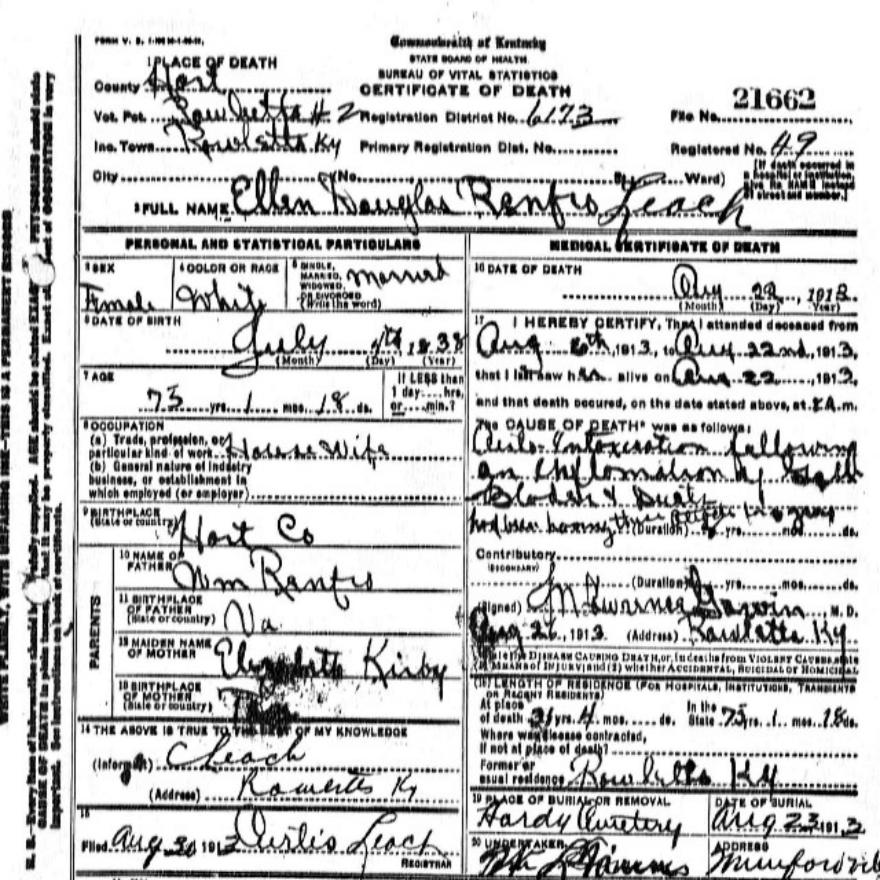 Commonwealth of Kentucky
STATE BOARD OF HEALTH.
BUREAU OF VITAL STATISTICS
CERTIFICATE OF DEATH
1 PLACE OF DEATH
County Hart
Vot. Pct. Rowletts # 2 Registration District No. 6173
File No. 21662
Inc. Town Rowletts Ky Primary Registration Dist. No.
Registered No. 49
City No. St. Ward)
[If death occurred in a hospital or institution, give its NAME instead of street and number.]
2 FULL NAME Ellen Douglas Renfro Leach
PERSONAL AND STATISTICAL PARTICULARS
3 SEX Female
4 COLOR OR RACE White
5 SINGLE, MARRIED, WIDOWED, OR DIVORCED (Write the word) Married
6 DATE OF BIRTH
July 4th 1838
(Month) (Day) (Year)
7 AGE
75 yrs. 1 mos. 18 ds.
If LESS than 1 day....hrs. or....min.?
8 OCCUPATION
(a) Trade, profession, or particular kind of work House Wife
(b) General nature of industry business, or establishment in which employed (or employer)
9 BIRTHPLACE (State or country) Hart Co
PARENTS
10 NAME OF FATHER Wm Renfro
11 BIRTHPLACE OF FATHER (State or country) Va
12 MAIDEN NAME OF MOTHER Elizabeth Kirby
13 BIRTHPLACE OF MOTHER (State or country)
14 THE ABOVE IS TRUE TO THE BEST OF MY KNOWLEDGE
(Informant) C Leach
(Address) Rowletts Ky
15
Filed Aug 30 1913 Curtis Leach
REGISTRAR
MEDICAL CERTIFICATE OF DEATH
16 DATE OF DEATH
Aug 22, 1913
(Month) (Day) (Year)
17 I HEREBY CERTIFY, That I attended deceased from
Aug 6th, 1913, to Aug 22nd, 1913,
that I last saw her alive on Aug 22, 1913,
and that death occured, on the date stated above, at m.
The CAUSE OF DEATH* was as follows:
Auto-Intoxication following
an Inflamation of Gall
Bladder & Ducts
had been having these attacks for
(Duration) yrs. mos. ds.
Contributory
(SECONDARY)
(Duration) yrs. mos. ds.
(Signed) M.D.
Aug 26, 1913 (Address) Rowletts Ky
*State the DISEASE CAUSING DEATH, or, in deaths from VIOLENT CAUSES, state
(1) MEANS OF INJURY; and (2) whether ACCIDENTAL, SUICIDAL OR HOMICIDAL
LENGTH OF RESIDENCE (FOR HOSPITALS, INSTITUTIONS, TRANSIENTS OR RECENT RESIDENTS)
At place of death 31 yrs. 4 mos. ds. In the State 75 yrs. 1 mos. 18 ds.
Where was disease contracted,
if not at place of death?
Former or usual residence Rowletts Ky
19 PLACE OF BURIAL OR REMOVAL
Hardy Cemetery
DATE OF BURIAL
Aug 23 1913
20 UNDERTAKER
ADDRESS